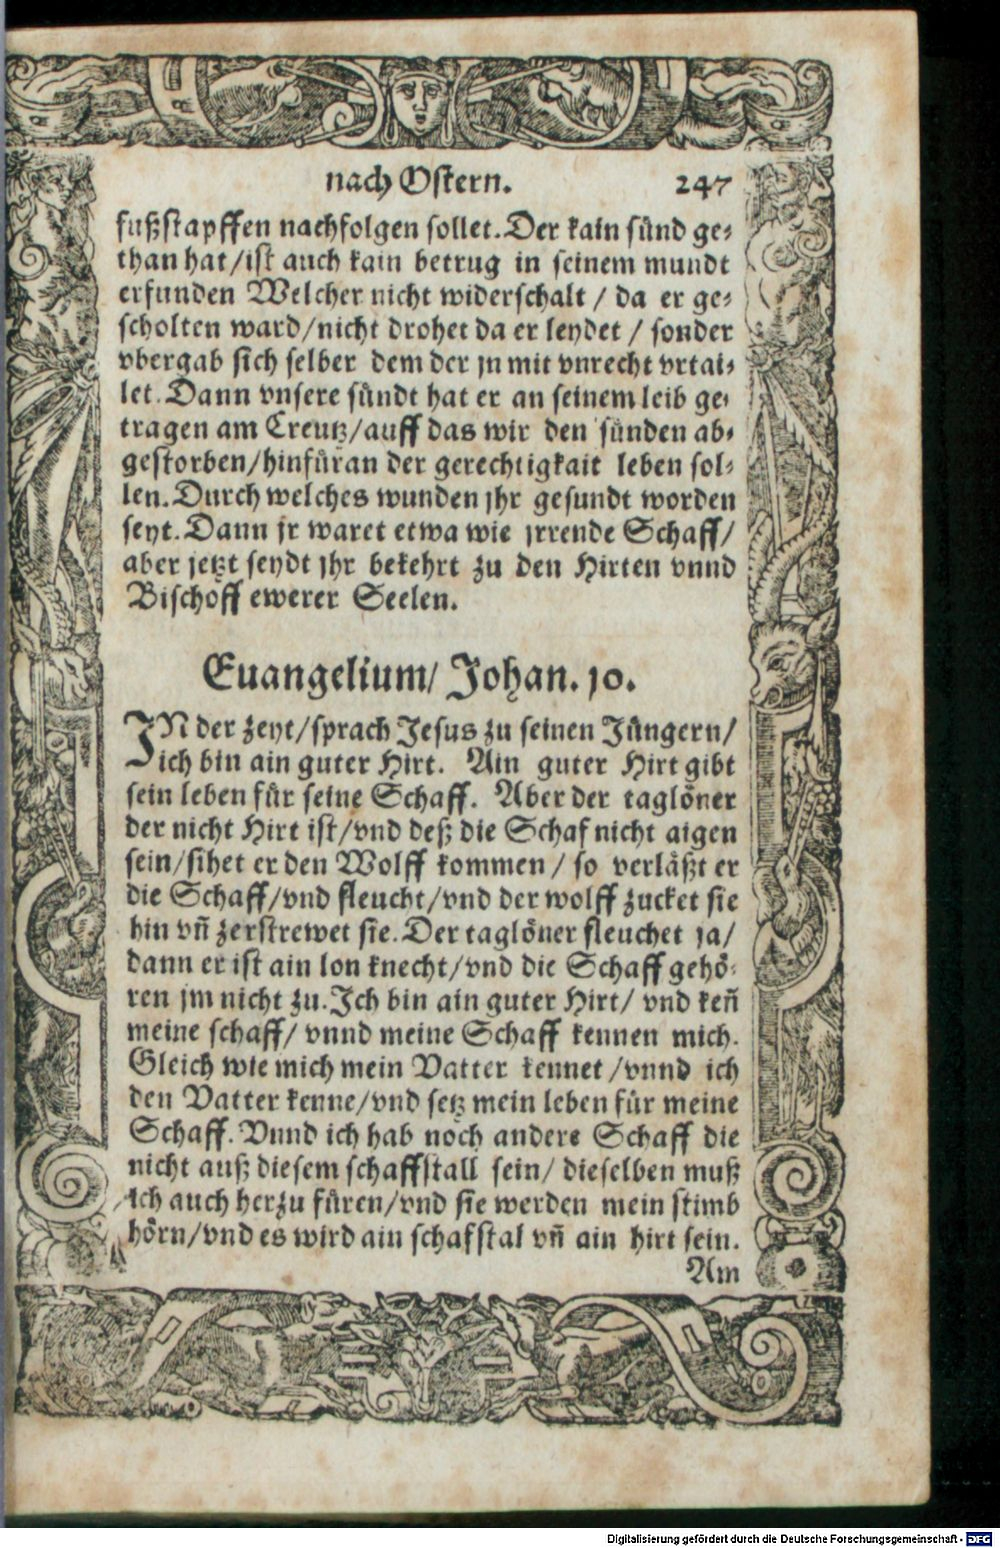 nach Ostern. 247
fußstapffen nachfolgen sollet. Der kain sünd ge-
than hat/ist auch kain betrug in seinem mundt
erfunden Welcher nicht widerschalt / da er ge-
scholten ward/nicht drohet da er leydet / sonder
vbergab sich selber dem der jn mit vnrecht vrtai-
let. Dann vnsere sündt hat er an seinem leib ge-
tragen am Creutz/auff das wir den sünden ab-
gestorben/hinfüran der gerechtigkait leben sol-
len. Durch welches wunden jhr gesundt worden
seyt. Dann jr waret etwa wie jrrende Schaff/
aber jetzt seydt jhr bekehrt zu den Hirten vnnd
Bischoff ewerer Seelen.
Euangelium/ Johan. 10.
IN der zeyt/sprach Jesus zu seinen Jüngern/
ich bin ain guter Hirt. Ain guter Hirt gibt
sein leben für seine Schaff. Aber der taglöner
der nicht Hirt ist/vnd deß die Schaf nicht aigen
sein/sihet er den Wolff kommen / so verläßt er
die Schaff/vnd fleucht/vnd der wolff zucket sie
hin vñ zerstrewet sie. Der taglöner fleuchet ja/
dann er ist ain lon knecht/vnd die Schaff gehö-
ren jm nicht zu. Ich bin ain guter Hirt/ vnd keñ
meine schaff/ vnnd meine Schaff kennen mich.
Gleich wie mich mein Vatter kennet /vnnd ich
den Vatter kenne/vnd setz mein leben für meine
Schaff. Vnnd ich hab noch andere Schaff die
nicht auß diesem schaffstall sein/ dieselben muß
ich auch herzu füren/vnd sie werden mein stimb
hörn/vnd es wird ain schafstal vñ ain hirt sein.
Am
Digitalisierung gefördert durch die Deutsche Forschungsgemeinschaft - DFG